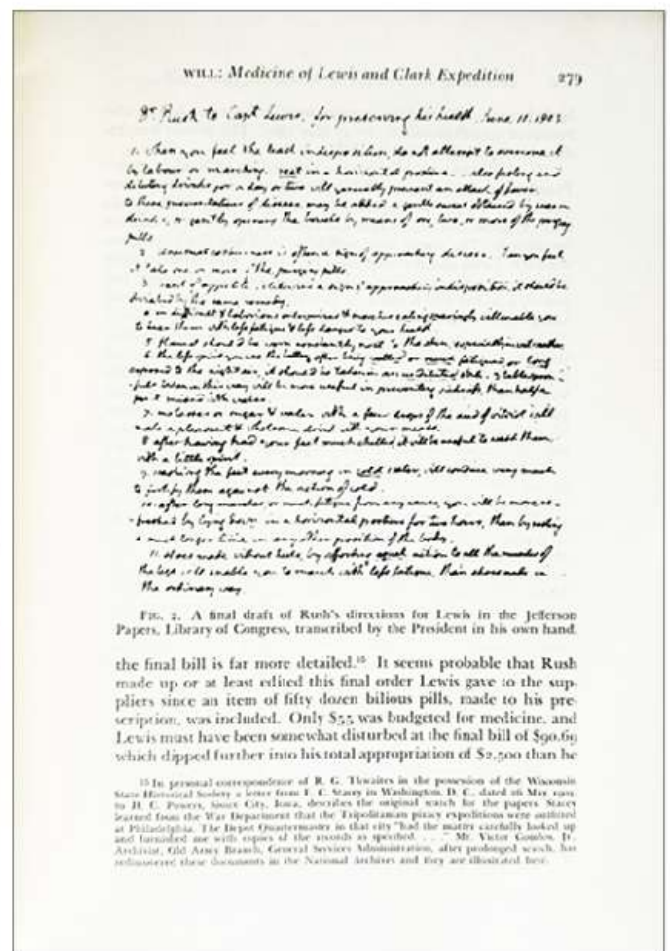 WILL: Medicine of Lewis and Clark Expedition 279
Dr. Rush to Capt. Lewis. for preserving his health. June. 11. 1803
1. when you feel the least indisposition, do not attempt to overcome it
by labour or marching. rest in a horizontal posture. also fasting and
diluting drinks for a day or two will generally prevent an attack of fever.
to these of disease may be added a gentle sweat obtained by warm
drinks, or gently opening the bowels by means of one, two, or more of the purging
pills.
2. unusual costiveness is often a sign of approaching disease. when you feel
it take one or more of the purging pills
3. want of appetite is likewise a sign of approaching indisposition, it should be
by the same remedy.
4. in difficult & laborious enterprises & marches eating sparingly will enable you
to bear them with less fatigue & less danger to your health
5. flannel should be worn constantly next to the skin, especially in wet weather
6. the less spirit you use the better. after being wetted or much fatigued or long
exposed to the night air, it should be taken in an undiluted state. 3 tablespoon-
fuls taken in this way will be more useful in preventing sickness, than half a
pint mixed with water.
7. molasses or sugar & water with a few drops of the acid of vitriol will
make a pleasant & wholsome drink with your meals.
8. after having had your feet much chilled, it will be useful to wash them
with a little spirit.
9. washing the feet every morning in cold water, will conduce very much
to fortify them against the action of cold.
10. after long marches or much fatigue from any cause, you will be more re-
freshed by lying down in a horizontal posture for two hours, than by resting
a much longer time in any other position of the body.
11. shoes made without heels, by affording equal action to all the muscles of
the legs will enable you to march with less fatigue, than shoes made in
the ordinary way.
FIG. 2. A final draft of Rush's directions for Lewis in the Jefferson
Papers, Library of Congress, transcribed by the President in his own hand.
the final bill is far more detailed.¹⁵ It seems probable that Rush
made up or at least edited this final order Lewis gave to the sup-
pliers since an item of fifty dozen bilious pills, made to his pre-
scription, was included. Only $55 was budgeted for medicine, and
Lewis must have been somewhat disturbed at the final bill of $90.69
which dipped further into his total appropriation of $2,500 than he
15 In personal correspondence of R. G. Thwaites in the possession of the Wisconsin
State Historical Society a letter from F. C. Stacey in Washington, D. C. dated 26 May
to H. C. Powers, Sioux City, Iowa, describes the original search for the papers. Stacey
learned from the War Department that the Tripolitanian piracy expeditions were outfitted
at Philadelphia. The Depot Quartermaster in that city "had the matter carefully looked up
and furnished me with copies of the records as specified. . . ." Mr. Victor Gondos, Jr.,
Archivist, Old Army Branch, General Services Administration, after prolonged search, has
rediscovered these documents in the National Archives and they are illustrated here.